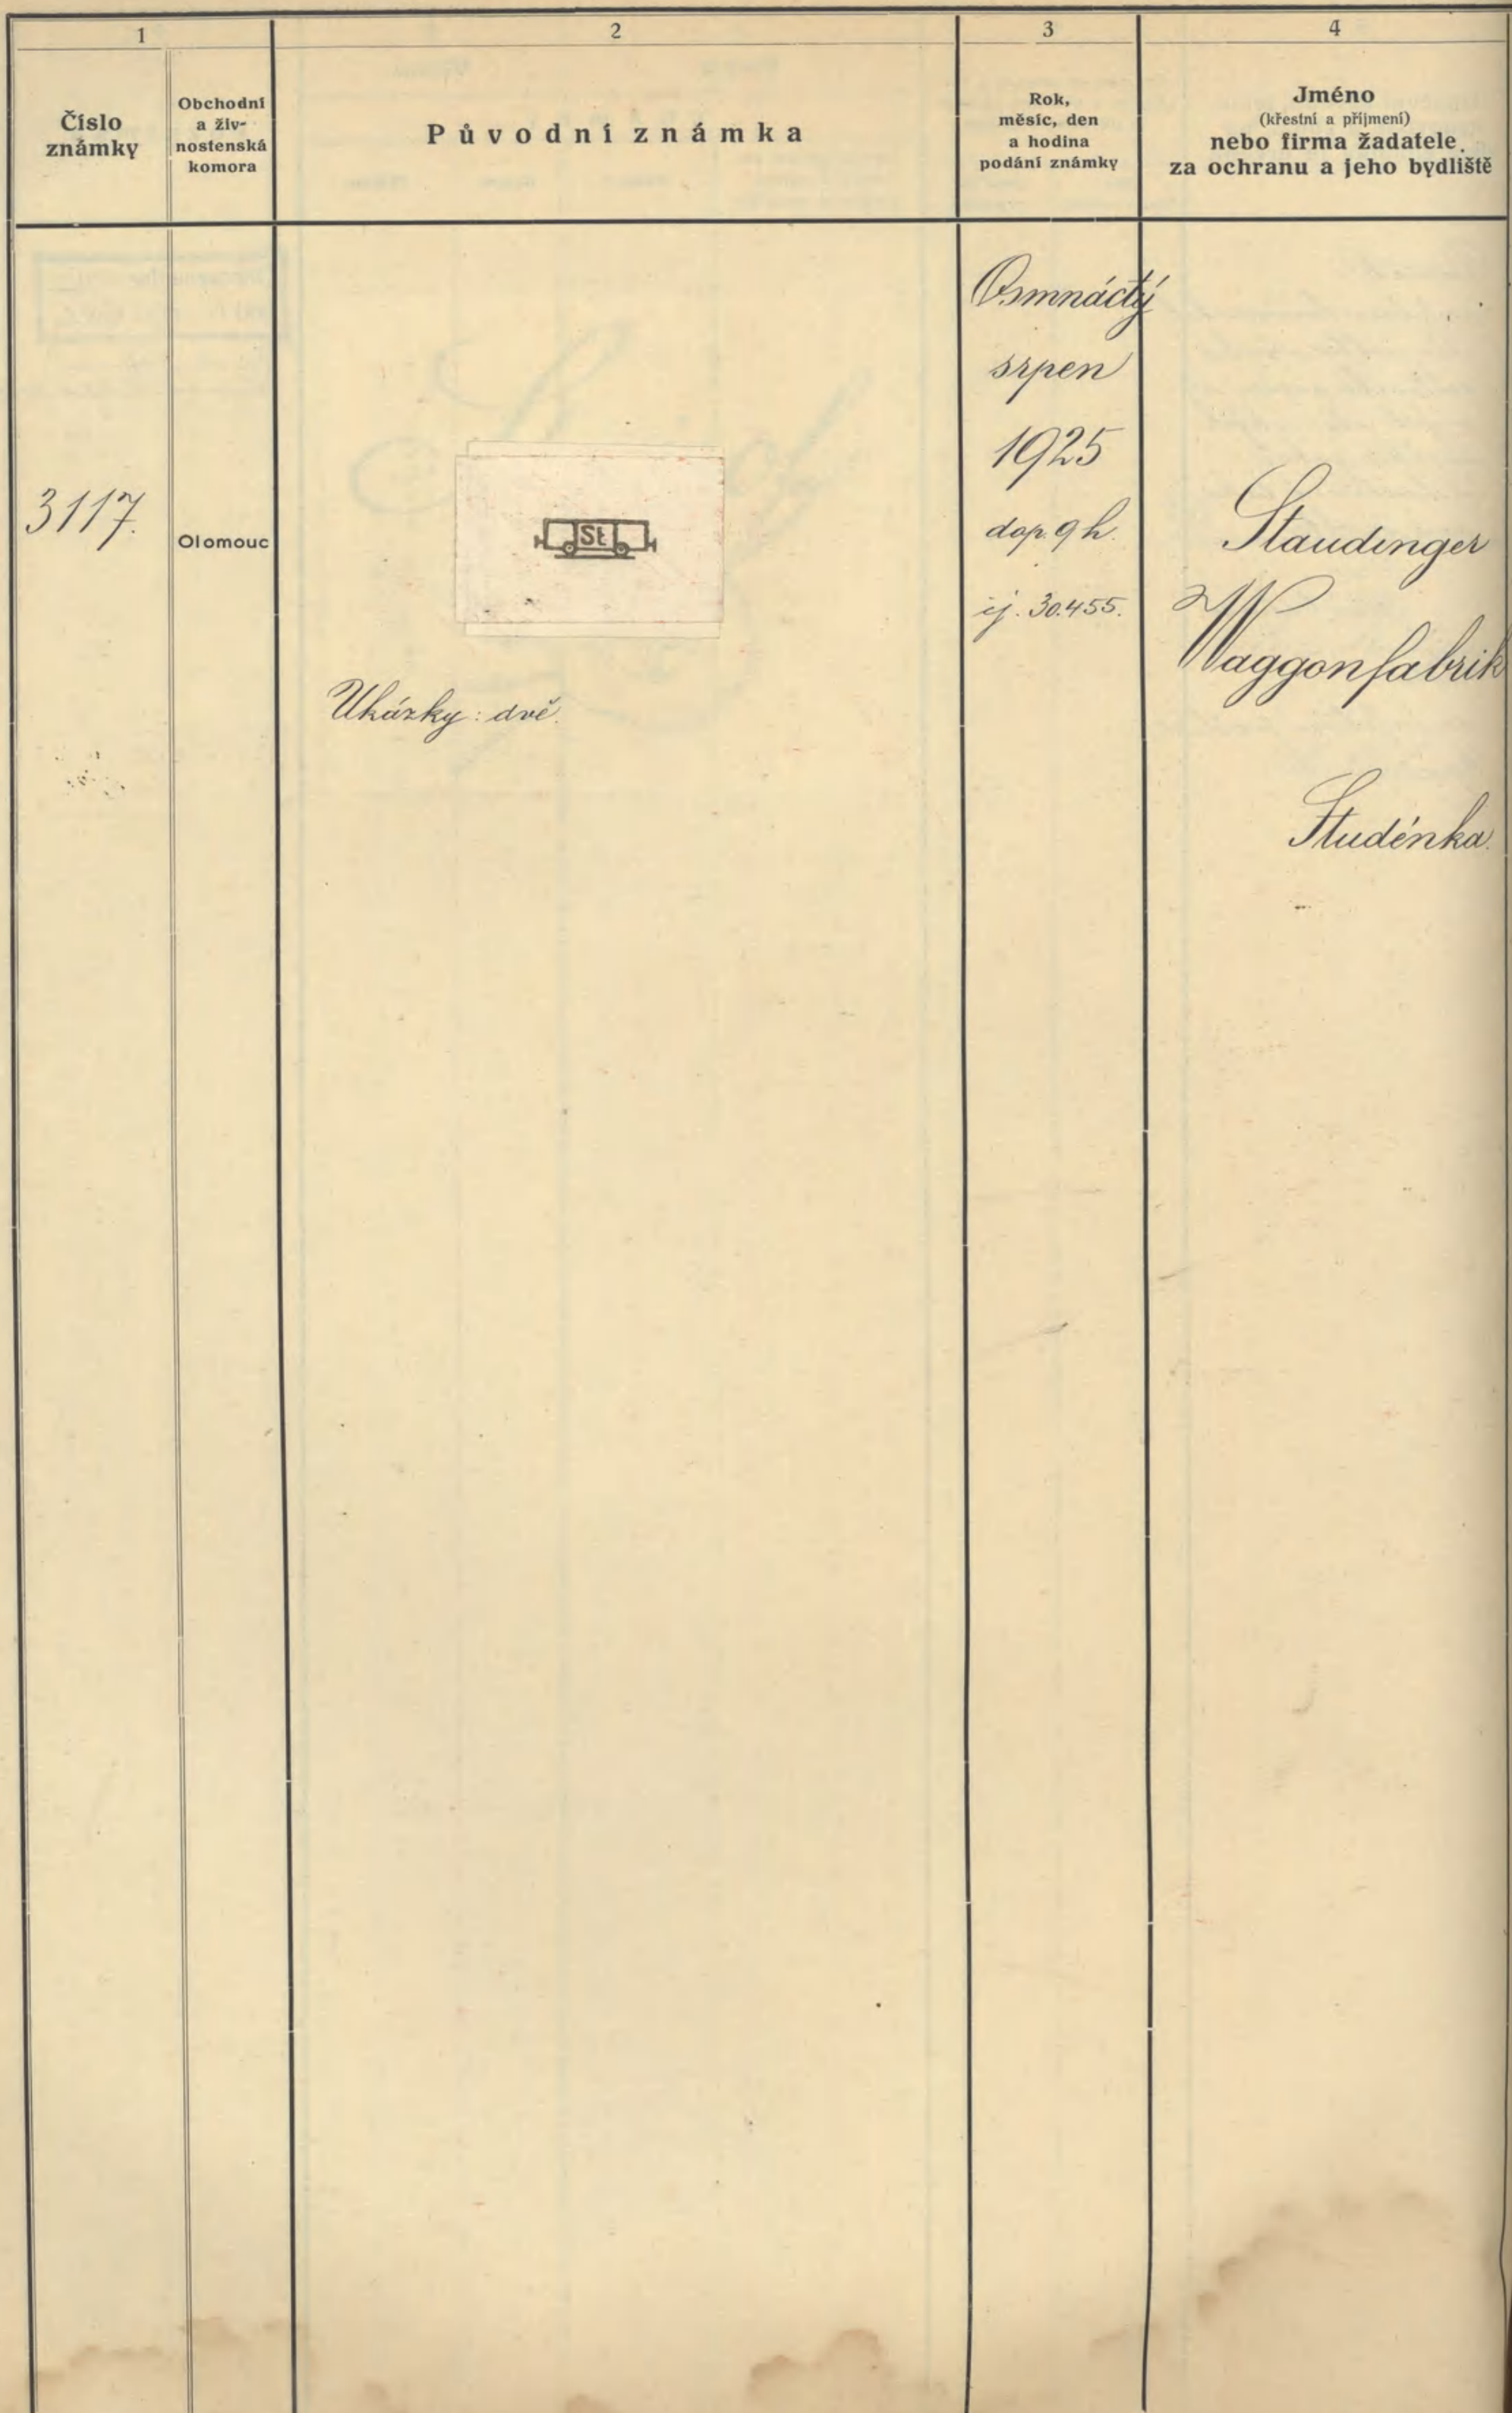 1
2
3
4
Číslo
známky
Obchodní
a živ-
nostenská
komora
Původní známka
Rok,
měsíc, den
a hodina
podání známky
Jméno
(křestní a příjmení)
nebo firma žadatele
za ochranu a jeho bydliště
3117.
Olomouc
St
Ukázky: dvě.
Osmnáctý
srpen
1925
dop. 9 h.
čj. 30.455.
Staudinger
Waggonfabrik
Studénka.